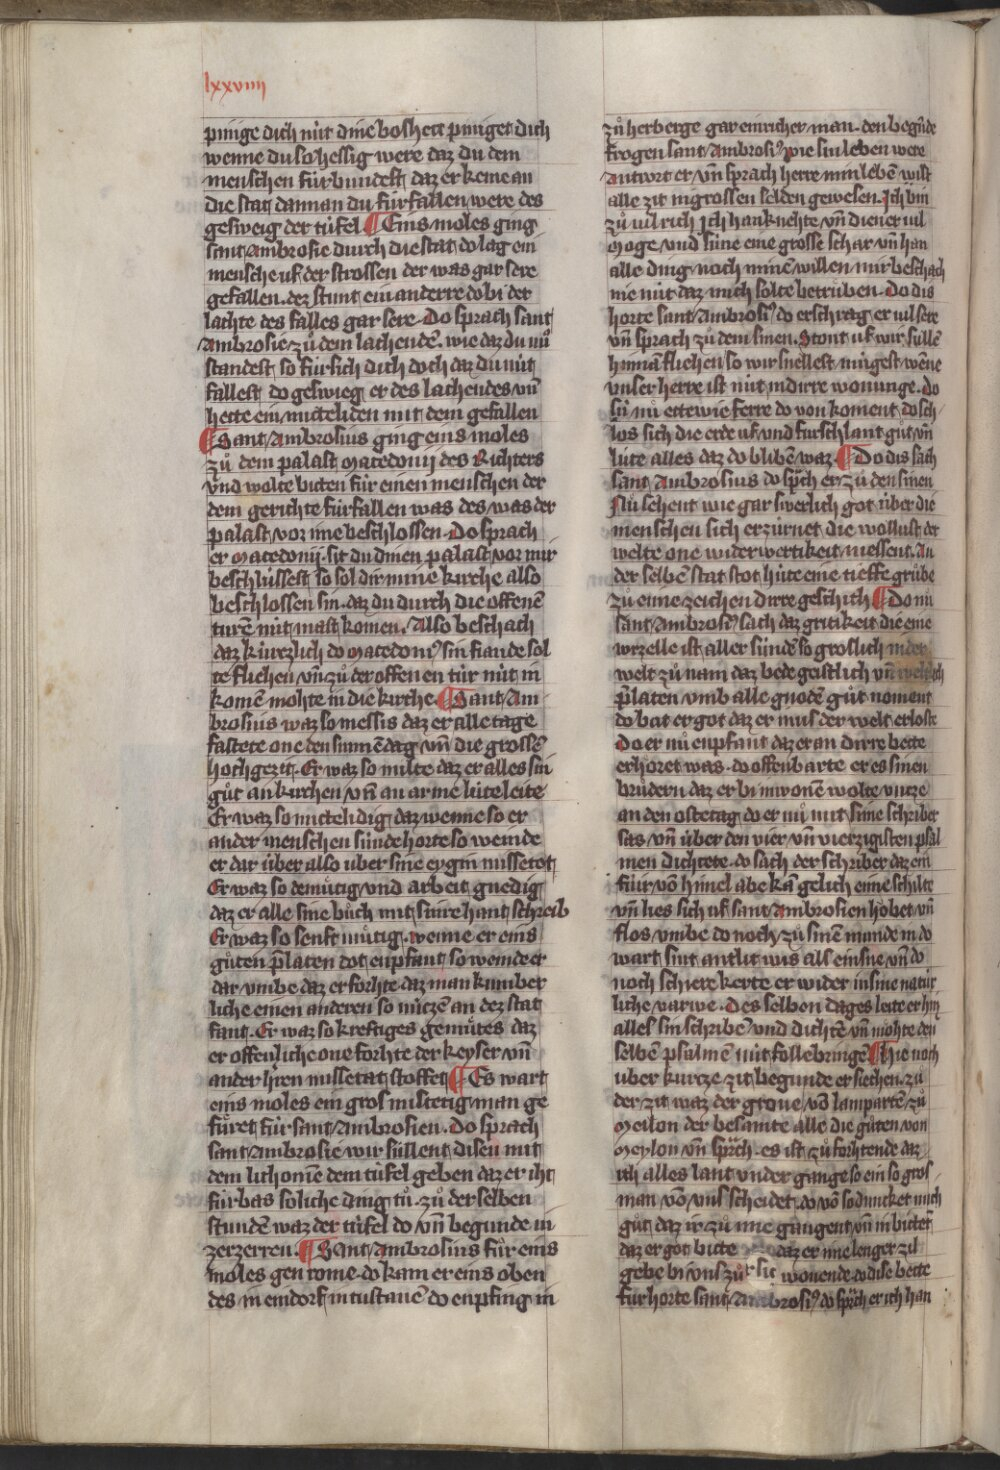 lxxviiii
pinige dich nüt dine bosheit piniget dich
wenne du so hessig were daz du dem
menschen fürbundest daz er keme an
die stat dannan du fürfallen were des
gesweig der tüfel ¶ Eins moles ging
sant Ambrosie durch die stat do lag ein
mensche uf der strossen der was gar sere
gefallen. dez stunt ein anderre do bi der
lachte des falles gar sere. Do sprach sant
Ambrosie zů dem lachendē. wie daz du nů
standest so fürsich dich doch daz du nüt
fallest do gesweig er des lachendes vn̄
hette ein mitteliden mit dem gefallen
¶ Sant Ambrosius ging eins moles
zů dem palast Macedonij des Richters
vnd wolte bitten für einen menschen der
dem gerichte fürfallen was des was der
palast vor ime beschlossen. Do sprach
er Macedonij. sit du dinen palast vor mir
beschlüssest so sol dir mine kirche also
beschlossen sin. daz du durch die offenē
turē nüt maft komen. Also beschach
daz kürzlich do Macedoniꝰ sin fiande sol
te fliehen vn̄ zů der offenen tür nüt in
komē mohte in die kirche ¶ Sant Am
brosius waz so messis daz er alle tage
fastete one den sunnēdag vn̄ die grossē
hochgezit. Er waz so milte daz er alles sin
gůt an kirchen vn̄ an arme lüte leite
Er waz so mittelidig daz wenne so er
ander menschen sünde horte so weinde
er dar über also uber sine eygin missetot
Er waz so demütig vnd arbeit gnedig
daz er alle sine bůch mit sinre hant schreib
Er waz so senftmůtig. wenne er eins
gůten p̄laten dot enpfant so weinde er
dar vmbe daz er forhte daz man kumber
liche einen anderen so nützē an dez stat
fant. Er waz so kreftiges gemütes daz
er offenliche one forhte der keyser vn̄
ander h̄ren missetat stoffet ¶ Es wart
eins moles ein gros mistetig man ge
fůret für sant Ambrosien. Do sprach
sant Ambrosie wir süllent disen mit
dem lichomē dem tüfel geben daz er iht
fürbas soliche ding tů. zů der selben
stundē waz der tüfel do vn̄ begunde in
zerzerren. ¶ Sant Ambrosius fůr eins
moles gen rome. do kam er eins oben
des in ein dorf in tustanē do enpfing in
zů herberge gar ein richer man. den begūde
frogen sant Ambrosiꝰ wie sin leben were
Antwort er vn̄ sprach herre min lebē wist
alle zit in grossen selden gewesen. Ich bin
zů vil rich Ich han knehte vn̄ diener vil
Moge vnd süne eine grosse schar vn̄ han
alle ding noch minē willen mir beschach
nie nüt daz mich solte betrüben. Do dis
horte sant Ambrosiꝰ do erschrag er vil sere
vn̄ sprach zů dem sinen. Stont uf wir süllē
hinnā fliehen so wir snellest mügest wēne
vnser herre ist nüt in dirre wonunge. Do
sü nů ettewie ferre do von koment do sch
los sich die erde uf vnd furschlant gůt vn̄
lüte alles daz do blibē waz ¶ Do dis sach
sant Ambrosius do sp̄ch er zů den sinen
Nů sehent wie gar swerlich got über die
menschen sich erzürnet die wollust der
welte one widerwertikeit niessent. An
der selbē stat stot hüte eine tieffe grůbe
zů eime zeichen dirre geschiht ¶ Do nů
sant Ambrosiꝰ sach daz gritikeit die eine
wrzelle ist aller sündē so groslich in der
welt zů nam daz bede geistlich vn̄ weltlich
p̄laten vmb alle gnodē gůt noment
do bat er got daz er in us der welt erloste
Do er nů enpfant daz er an dirre bette
erhöret was. do offenbarte er es sinen
brüdern daz er bi in wonē wolte vntze
an den ostetag do er nů mit sime schriber
sas vn̄ über den vier vn̄ vierzigisten psal
men dichtete. do sach der schriber daz ein
für vō himel abe kā gelich eime schilte
vn̄ lies sich uf sant Ambrosien hobet vn̄
flos vmbe do noch zů sinē munde in do
wart sint antlit wis als ein sne vn̄ do
noch schiere kerte er wider in sine natür
liche varwe. Des selben dages leite er hin
alles sin schribē vnd dichtē vn̄ mohte den
selbē psalmē nüt follebringē ¶ Hie noch
uber kurtze zit begunde er siechen. zů
der zit waz der groue vō lamparten zů
Meilon der besamte alle die gůten von
Meylon vn̄ sp̄ch. es ist zů forhtende daz
ich alles lant vnder gange so ein so gros
man vō vns scheidet. do vō so duncket mich
gůt daz ir zů ime gangent vn̄ in bittēt
daz er got bitte daz er ime lenger zil
gebe bi vns zů wonende. do dise bette
für horte sant Ambrosiꝰ do sp̄ch er ich han